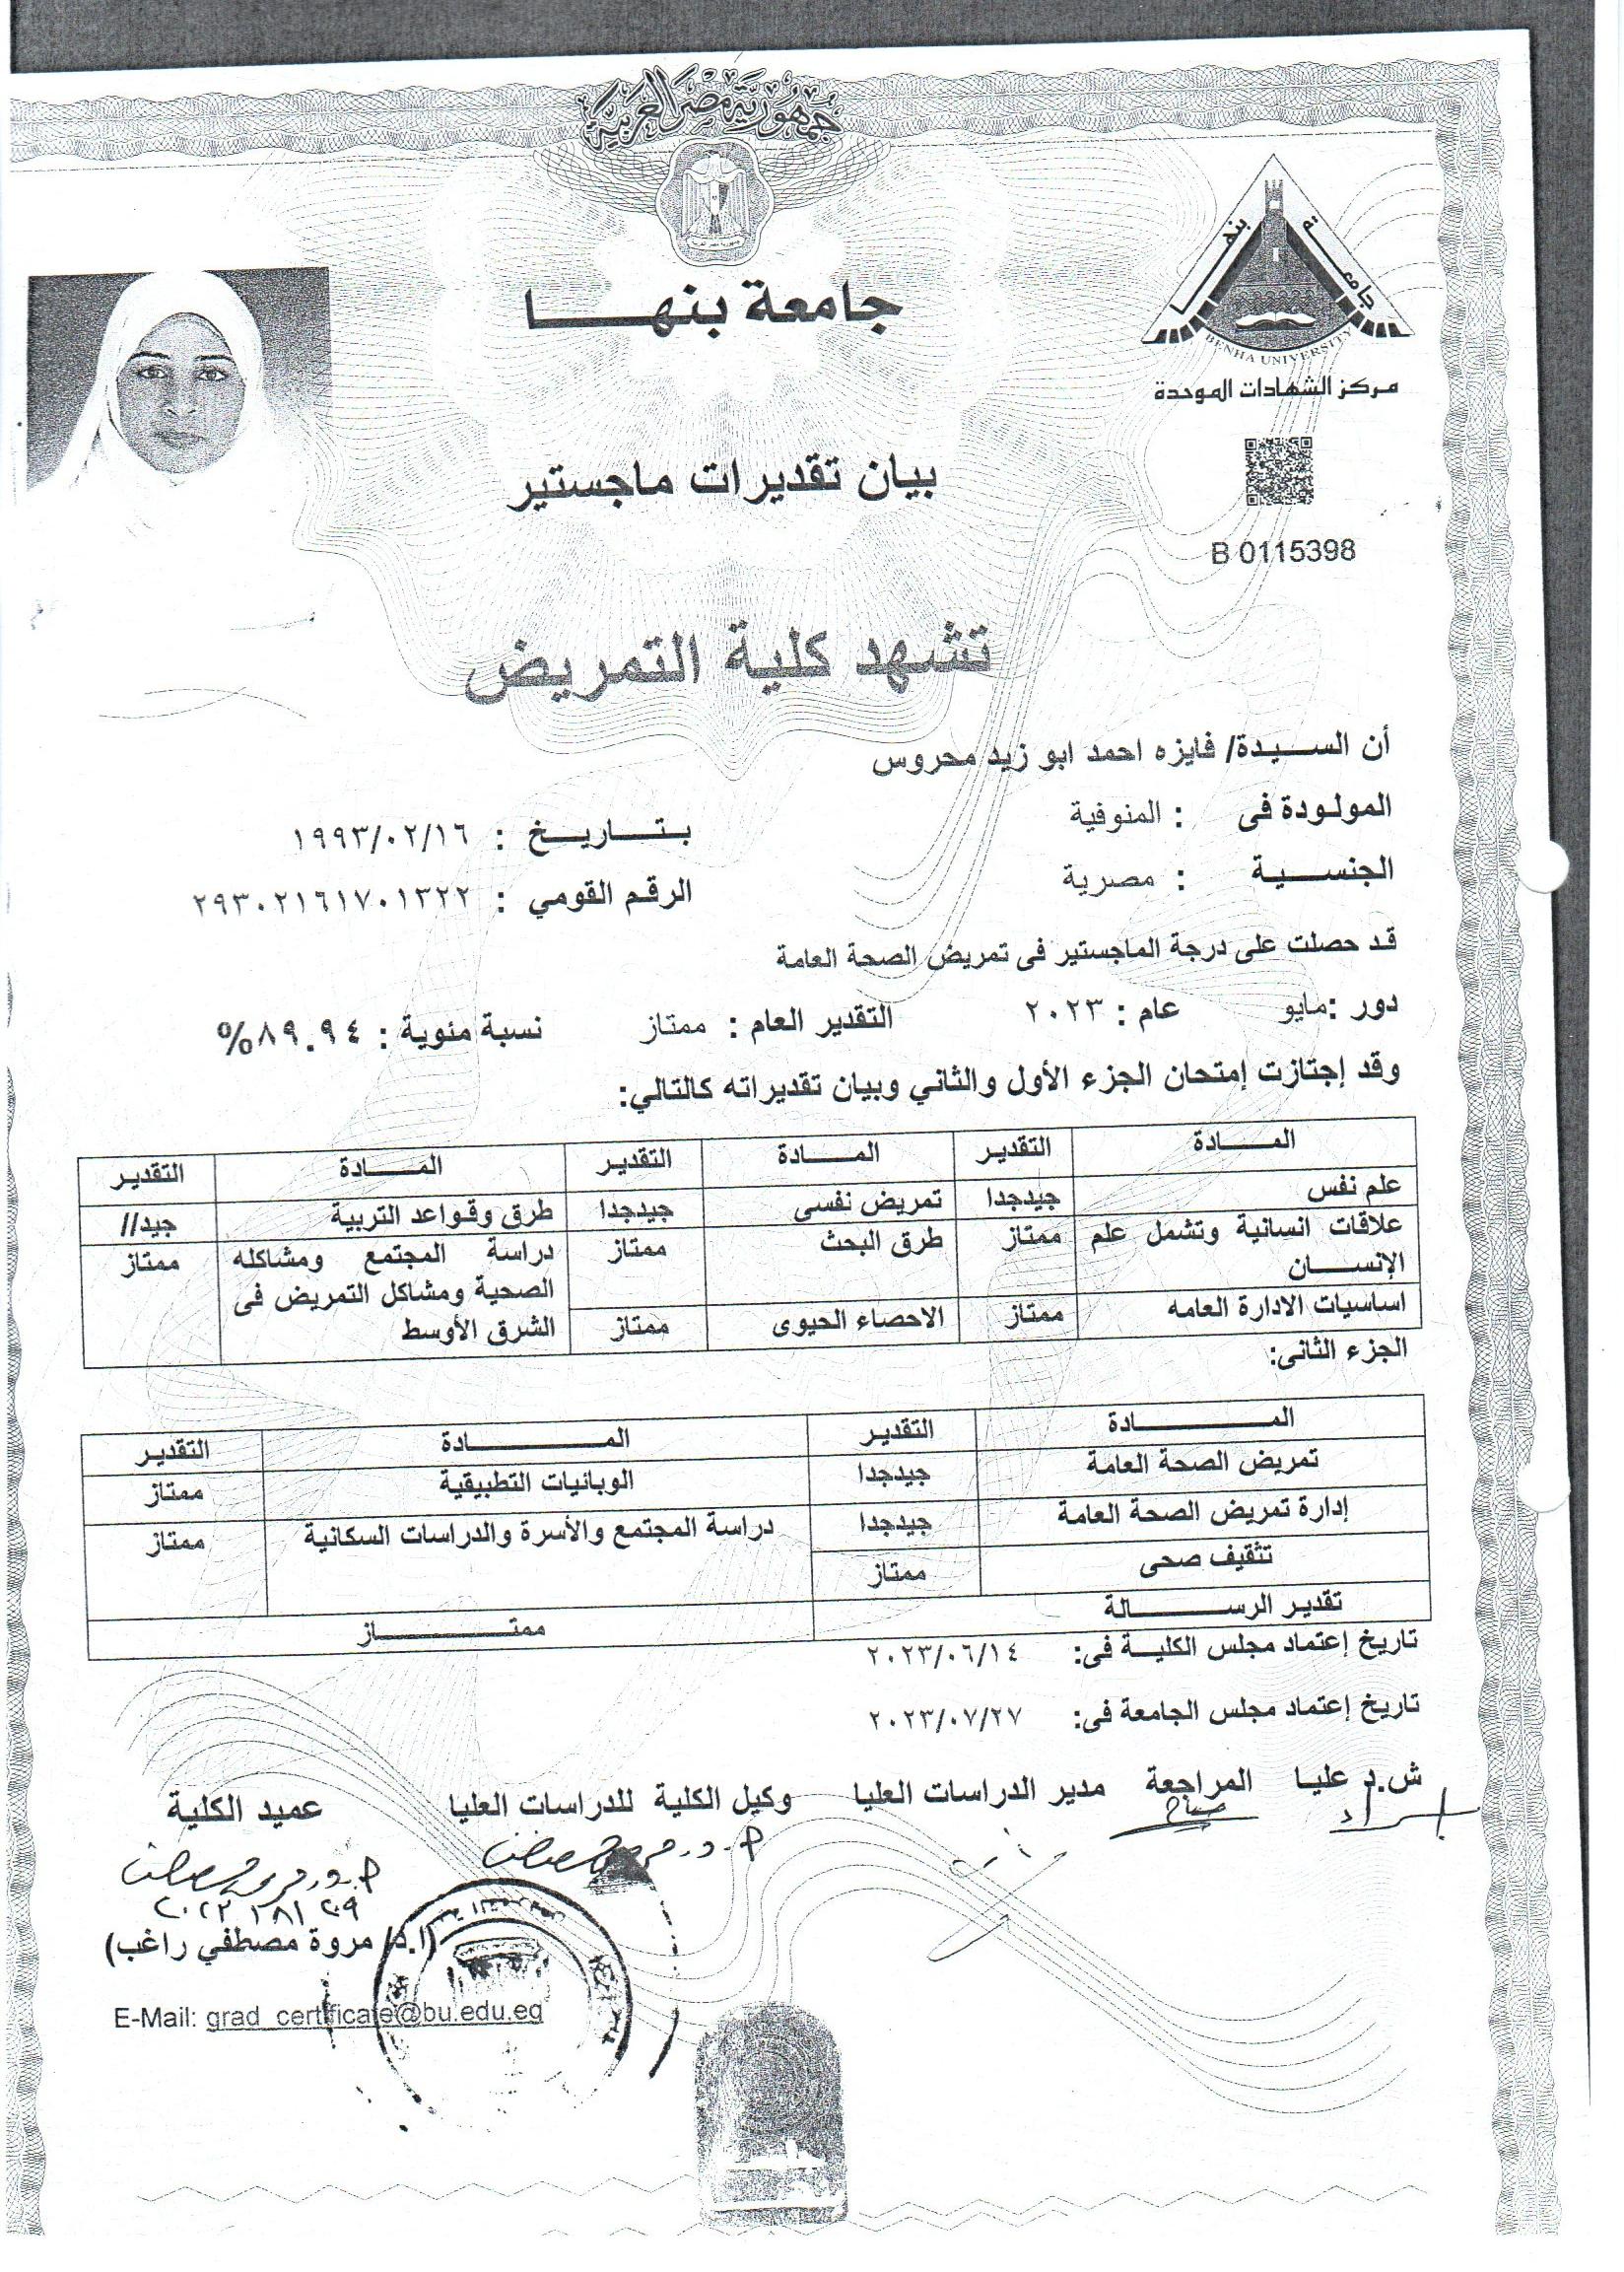 جمهورية مصر العربية
جامعة بنها
BENHA UNIVERSITY
جامعة بنهــــــا
مركز الشهادات الموحدة
بيان تقديرات ماجستير
B 0115398
تشهد كلية التمريض
أن الســـيدة/ فايزه احمد ابو زيد محروس
المولودة فى : المنوفية بـتــــاريــــخ : ١٩٩٣/٠٢/١٦
الجنســـية : مصرية الرقم القومي : ٢٩٣٠٢١٦١٧٠١٣٢٢
قد حصلت على درجة الماجستير فى تمريض الصحة العامة
دور :مايو عام : ٢٠٢٣ التقدير العام : ممتاز نسبة مئوية : ٨٩.٩٤%
وقد إجتازت إمتحان الجزء الأول والثاني وبيان تقديراته كالتالي:
المـــــادة التقدير المـــــادة التقدير المـــــادة التقدير
علم نفس جيدجدا تمريض نفسى جيدجدا طرق وقواعد التربية جيد//
علاقات انسانية وتشمل علم الإنســــان ممتاز طرق البحث ممتاز دراسة المجتمع ومشاكله الصحية ومشاكل التمريض فى الشرق الأوسط ممتاز
اساسيات الادارة العامه ممتاز الاحصاء الحيوى ممتاز
الجزء الثانى:
المــــــــــادة التقدير المــــــــــادة التقدير
تمريض الصحة العامة جيدجدا الوبائيات التطبيقية ممتاز
إدارة تمريض الصحة العامة جيدجدا دراسة المجتمع والأسرة والدراسات السكانية ممتاز
تثقيف صحى ممتاز
تقدير الرســــــالة ممتـــــــــاز
تاريخ إعتماد مجلس الكليـة فى: ٢٠٢٣/٠٦/١٤
تاريخ إعتماد مجلس الجامعة فى: ٢٠٢٣/٠٧/٢٧
ش.د عليا المراجعة مدير الدراسات العليا وكيل الكلية للدراسات العليا عميد الكلية
صباح
(ا.د/ مروة مصطفي راغب)
E-Mail: grad_certificate@bu.edu.eg